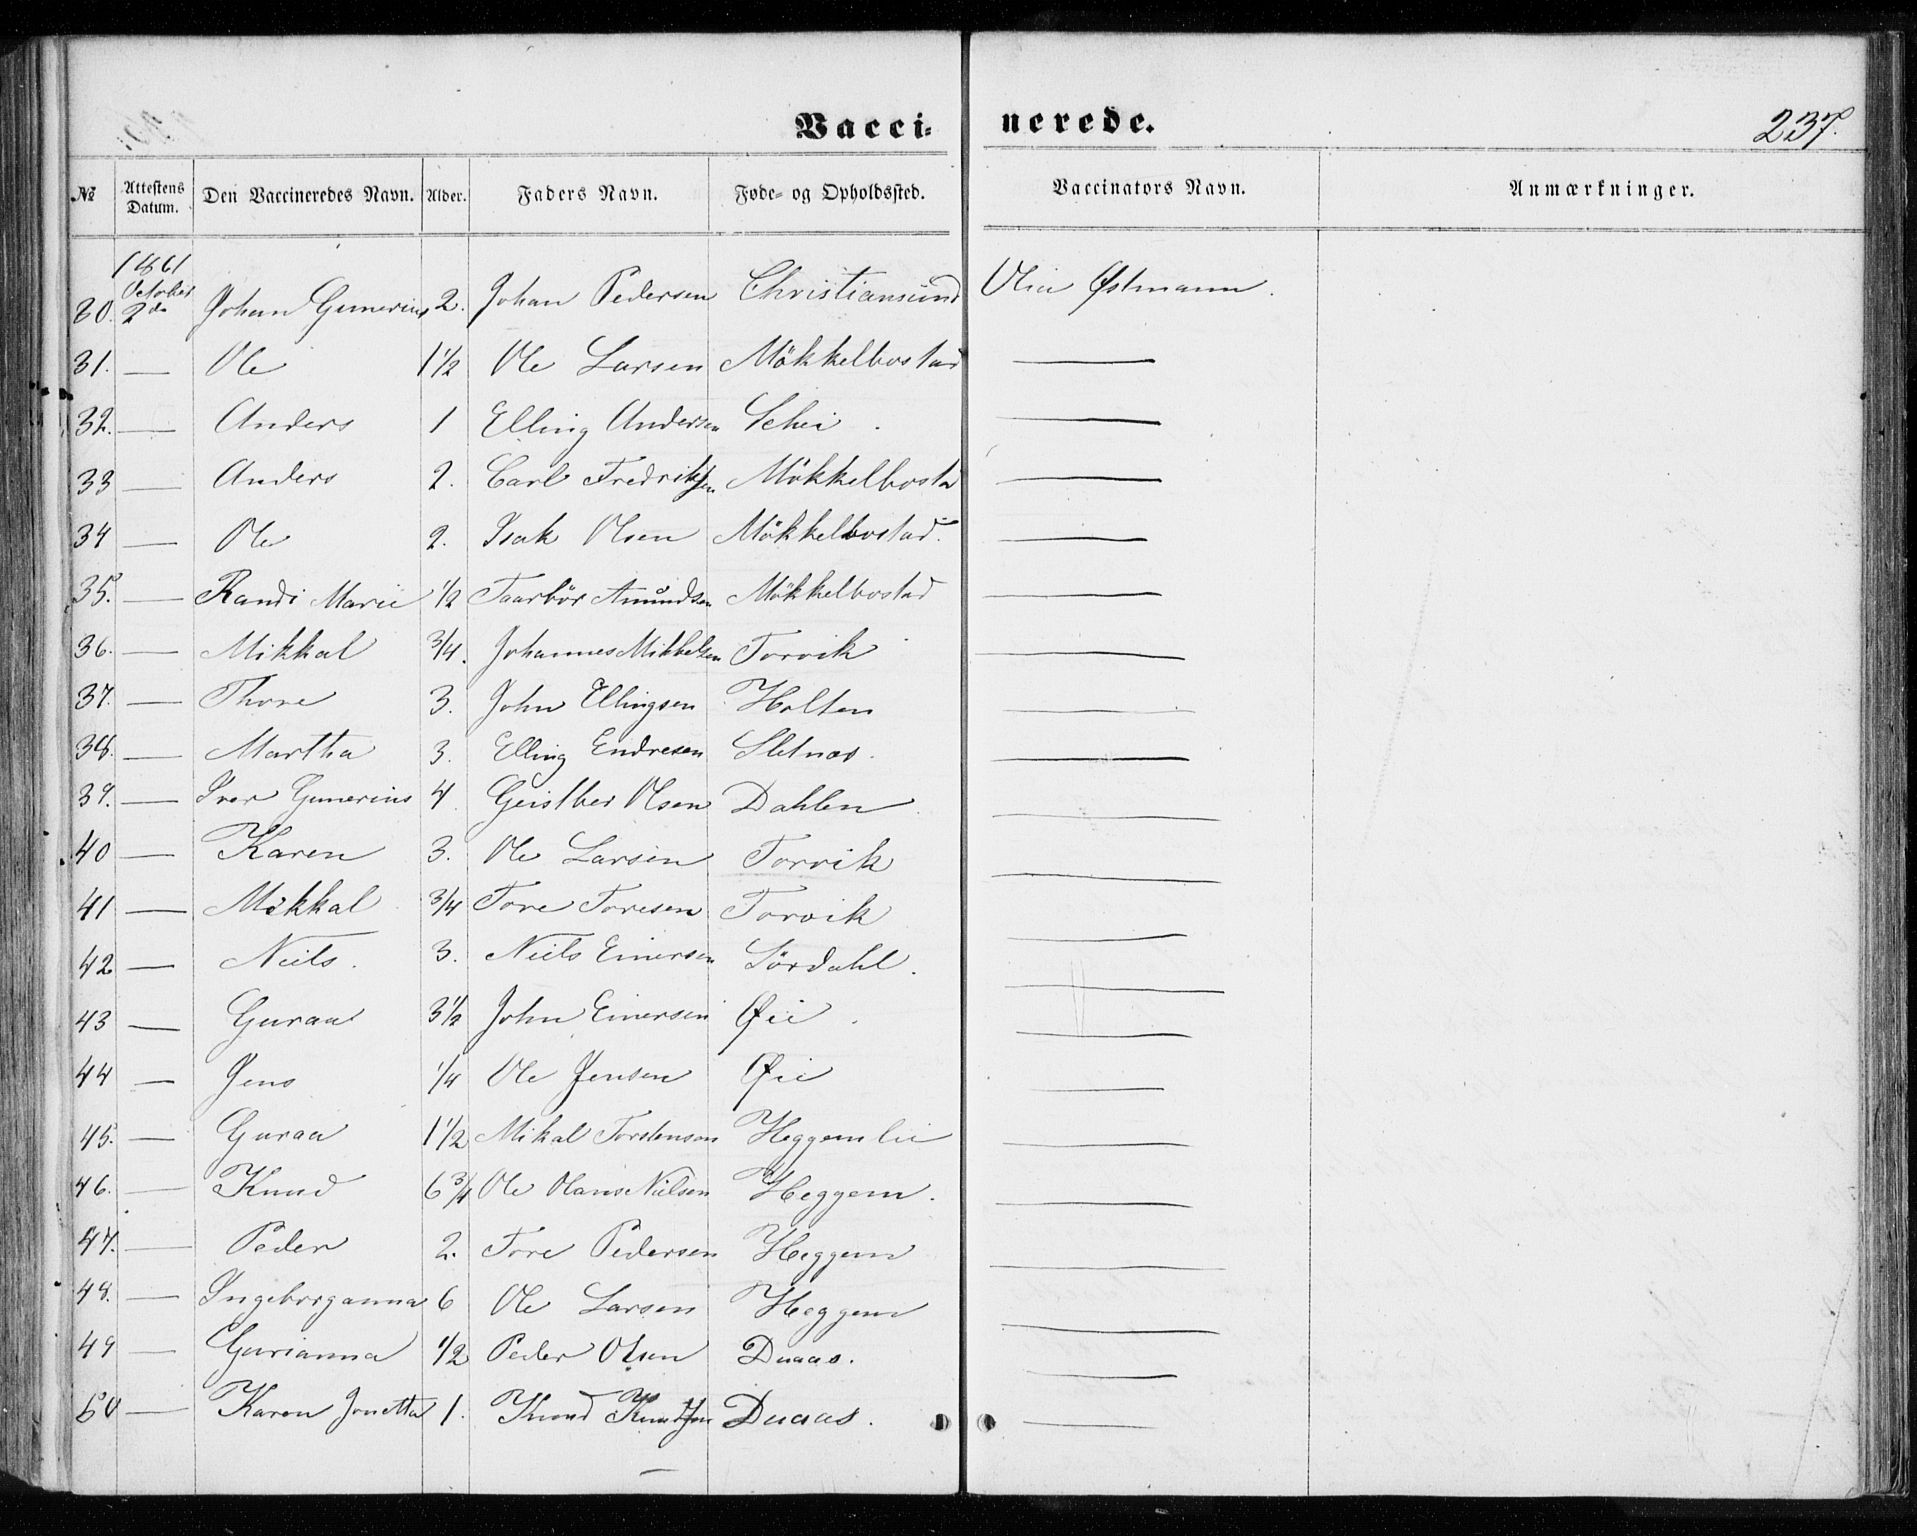 Vacci- nerede. 237.
№ Attestens Datum. Den Vaccineredes Navn. Alder. Faders Navn. Føde- og Opholdssted. Vaccinators Navn. Anmærkninger.
1861
October
30. 2de Johan Gunerius 2. Johan Pedersen Christiansund Østmann.
31. — Ole 1 1/2 Ole Larsen Mökkelbostad —
32. — Anders 1 Elling Andersen Schei. —
33 — Anders 2. Carl Fredriksen Mökkelbosta —
34 — Ole 2. Isak Olsen Mökkelbostad. —
35. — Randi Marie 1/2 Taarbör Amundsen Mökkelbostad —
36. — Mikkal 3/4. Johannes Mikkelsen Torvik —
37. — Thore 3. John Ellingsen Holten —
38. — Martha 3. Elling Endresen Sletnæs. —
39. — Iver Gunerius 4 Olsen Dahlen. —
40 — Karen 3. Ole Larsen Torvik —
41 — Mikkal 3/4 Tore Toresen Torvik —
42 — Niels. 3. Niels Einersen Sördahl. —
43 — Guraa 3 1/2 John Einersen Øie. —
44 — Jens 1/4 Ole Jensen Øie —
45. — Guraa 1 1/2 Mikal Torstensen Heggemlie —
46. — Knud 6 3/4 Ole Hans Nielsen Heggem. —
47. — Peder 2. Tore Pedersen Heggem —
48. — Ingeborganna 6 Ole Larsen Heggem —
49 — Gurianna 1/2 Peder Olsen Duaas. —
50 — Karen Jonetta 1. Knud Knudsen Duaas. —